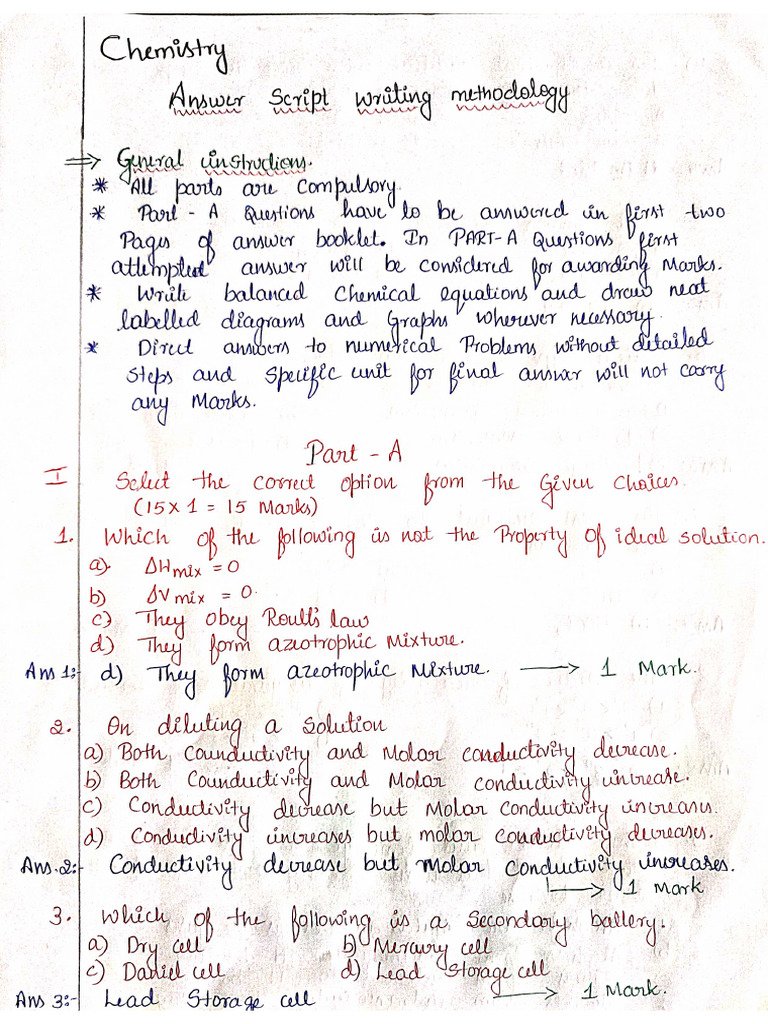 Chemistry
Answer Script writing methodology
⇒ General instructions.
* All parts are Compulsory.
* Part - A Questions have to be answered in first two
Pages of answer booklet. In PART-A Questions first
attempted answer will be considered for awarding Marks.
* Write balanced Chemical equations and draw neat
labelled diagrams and Graphs wherever necessary.
* Direct answers to numerical Problems without detailed
Steps and Specific unit for final answer will not carry
any Marks.
Part - A
I Select the correct option from the Given Choices.
(15 x 1 = 15 Marks)
1. Which of the following is not the Property of ideal solution.
a). ΔHmix = 0
b) ΔVmix = 0.
c) They obey Roult's law
d) They form azeotrophic Mixture.
Ans 1:- d) They form azeotrophic Mixture. → 1 Mark.
2. On diluting a Solution
a) Both, Counductivity and Molar conductivity decrease.
b) Both Counductivity and Molar conductivity increase.
c) Conductivity decrease but Molar conductivity increases.
d) Conductivity increases but molar conductivity decreases.
Ans.2:- Conductivity decrease but molar conductivity increases.
→ 1 Mark
3. Which of the following is a Secondary battery.
a) Dry cell b) Mercury cell
c) Daniel cell d) Lead Storage cell
Ans 3:- Lead Storage cell → 1 Mark.